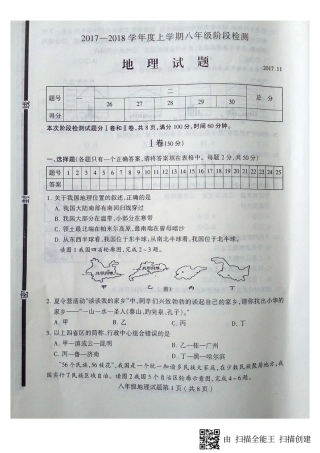 2017—2018 学年度上学期八年级阶段检测
地 理 试 题
2017.11
题号 一 二 总分
1—25 26 27 28 29 30
得分
本次阶段检测试题分Ⅰ卷和Ⅱ卷，共 8 页，满分 100 分，时间 60 分钟。
Ⅰ卷(50 分)
一、选择题(各题只有一个正确答案，请将答案填在表格中。每题 2 分，共 50 分)
题号 1 2 3 4 5 6 7 8 9 10 11 12 13 14 15 16 17 18 19 20 21 22 23 24 25
答案
1. 关于我国地理位置的叙述，正确的是
A. 我国大陆南部有南回归线穿过
B. 我国大部分在温带，小部分在寒带
C. 领土最北端在帕米尔高原，最南端在曾母暗沙
D. 从东西半球看，我国位于东半球，从南北半球看，我国位于北半球
读图 1 我国四省轮廓图，完成 2～3 题。
甲 乙 图1 丙 丁
2. 夏令营活动“谈谈我的家乡”中，同学们兴致勃勃的谈起自己的家乡，请你找出小华的
家乡“一山一水一圣人(泰山、趵突泉、孔子)。”
A. 甲 B. 乙 C. 丙 D. 丁
3. 以上四省区的简称、行政中心组合错误的是
A. 甲—滇或云—昆明 B. 乙—桂—广州
C. 丙—鲁—济南 D. 丁—黑—哈尔滨
“56 个民族，56 枝花”，我国是一个和谐的多民族大家庭，在少数民族聚居地方，我
国实行了民族区域自治。读图 2 我国 5 个自治区轮廓示意图，完成 4～6 题。
八年级地理试题第 1 页 (共 8 页)
由 扫描全能王 扫描创建